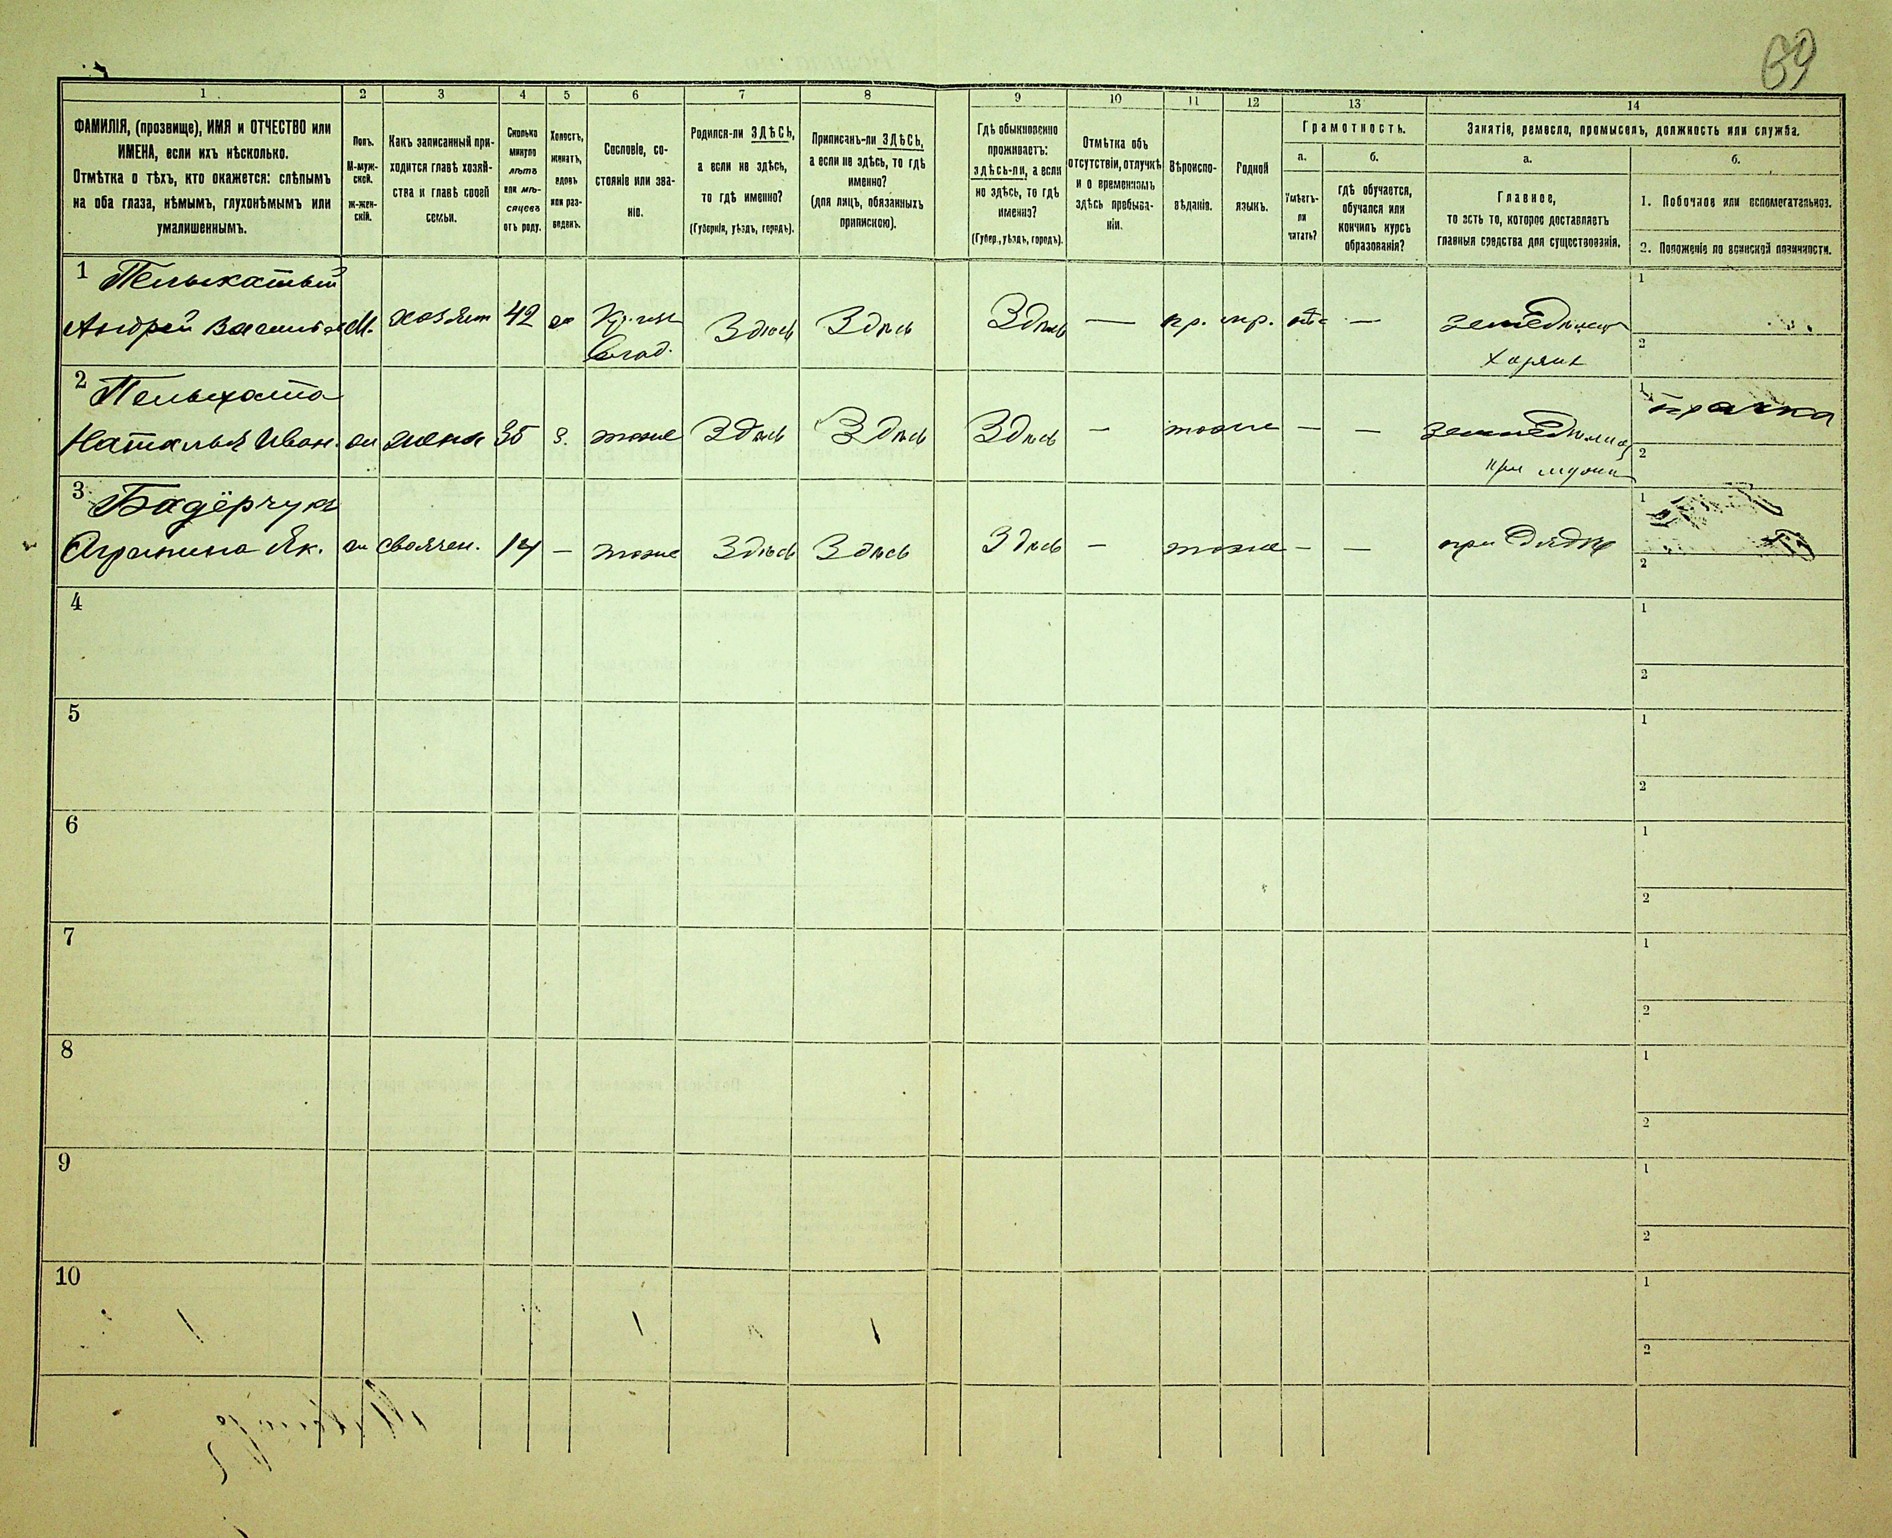 69
1 2 3 4 5 6 7 8 9 10 11 12 13 14
ФАМИЛІЯ, (прозвище), ИМЯ и ОТЧЕСТВО или
ИМЕНА, если ихъ нѣсколько.
Отмѣтка о тѣхъ, кто окажется: слѣпымъ
на оба глаза, нѣмымъ, глухонѣмымъ или
умалишеннымъ.
Полъ.
М-муж-
ской.
ж-жен-
скій.
Какъ записанный при-
ходится главѣ хозяй-
ства и главѣ своей
семьи.
Сколько
минуло
лѣтъ
или мѣ-
сяцевъ
отъ роду.
Холостъ,
женатъ,
вдовъ
или раз-
веденъ.
Сословіе, со-
стояніе или зва-
ніе.
Родился-ли ЗДѢСЬ,
а если не здѣсь,
то гдѣ именно?
(Губернія, уѣздъ, городъ).
Приписанъ-ли ЗДѢСЬ,
а если не здѣсь, то гдѣ
именно?
(для лицъ, обязанныхъ
припискою).
Гдѣ обыкновенно
проживаетъ:
здѣсь-ли, а если
не здѣсь, то гдѣ
именно?
(Губер., уѣздъ, городъ).
Отмѣтка объ
отсутствіи, отлучкѣ
и о временномъ
здѣсь пребыва-
ніи.
Вѣроиспо-
вѣданіе.
Родной
языкъ.
Грамотность.
а.
Умѣетъ-
ли
читать?
б.
гдѣ обучается,
обучался или
кончилъ курсъ
образованія?
Занятіе, ремесло, промыселъ, должность или служба.
а.
Главное,
то есть то, которое доставляетъ
главныя средства для существованія.
б.
1. Побочное или вспомогательное.
2. Положеніе по воинской повинности.
1 Пелыхатый
Андрей М. хозяин 42 Здѣсь Здѣсь Здѣсь — пр. мр. —
1
2
2 Пелыхата
Наталья Иван. жена 35 з. тоже Здѣсь Здѣсь Здѣсь — тоже — —
при мужи
1 прачка
2
3 Бадёрчукъ
Агрипина Як. своячен. 14 — тоже Здѣсь Здѣсь Здѣсь — тоже — — при дядѣ
1
2
4 1
2
5 1
2
6 1
2
7 1
2
8 1
2
9 1
2
10 1
2